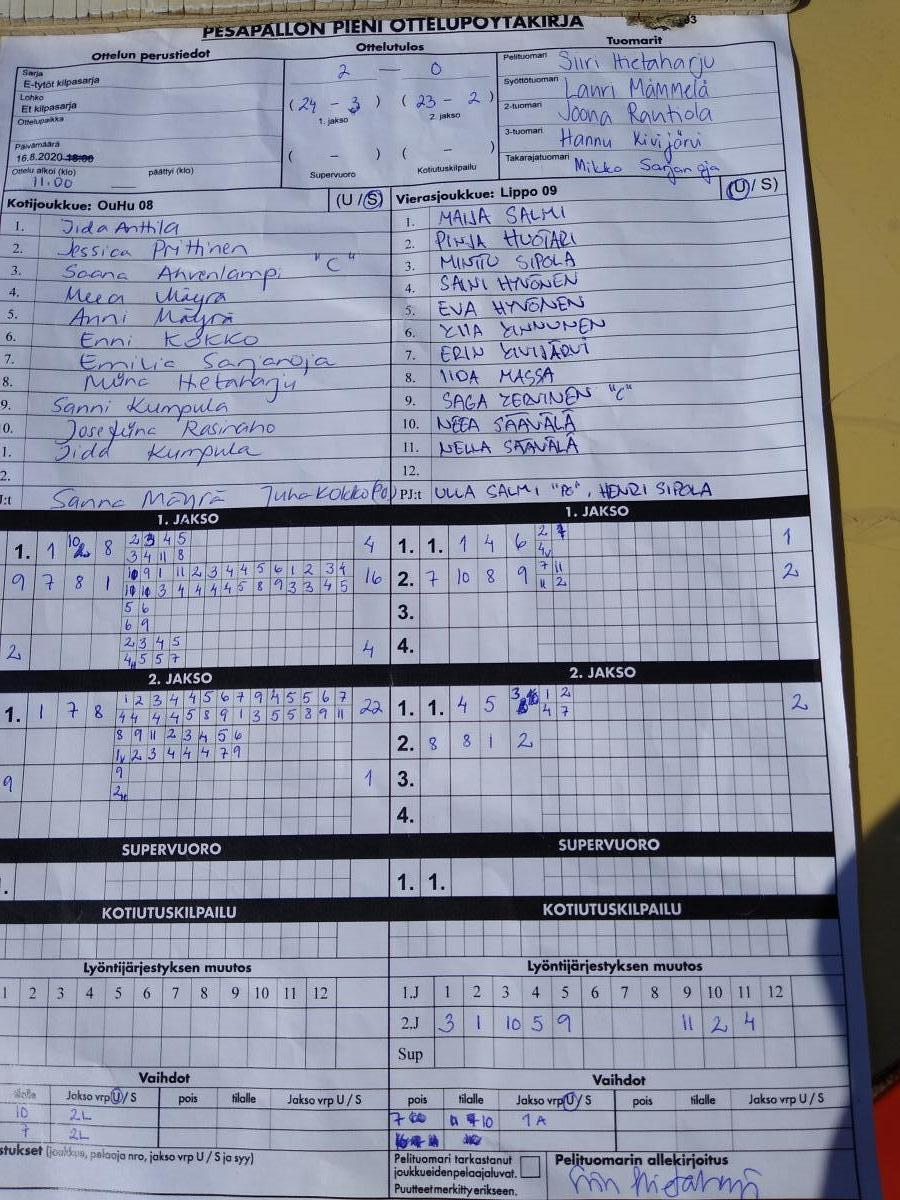 PESÄPALLON PIENI OTTELUPÖYTÄKIRJA
Ottelun perustiedot
Sarja
E-tytöt kilpasarja
Lohko
Et kilpasarja
Ottelupaikka
Päivämäärä
16.8.2020 18:00
Ottelu alkoi (klo) päättyi (klo)
11.00
Ottelutulos
2 — 0
(24 - 3) (23 - 2)
1. jakso 2. jakso
( - ) ( - )
Supervuoro Kotiutuskilpailu
Tuomarit
Pelituomari Siiri Hietaharju
Syöttötuomari Lauri Mämmelä
2-tuomari Joona Rantiola
3-tuomari Hannu Kivijärvi
Takarajatuomari Mikko Sarjanoja
Kotijoukkue: OuHu 08 (U / S)
1. Iida Anttila
2. Jessica Prittinen
3. Saana Ahvenlampi "C"
4. Meea Mäyrä
5. Anni Mäyrä
6. Enni Kokko
7. Emilia Sarjanoja
8. Minc Hietaharju
9. Sanni Kumpula
0. Josefiina Rasinaho
1. Iida Kumpula
2.
J:t Sanna Mäyrä Juha Kokko (Po)
Vierasjoukkue: Lippo 09 (U / S)
1. MAIJA SALMI
2. PINJA HUOTARI
3. MINTTU SIPOLA
4. SAINI HYVÖNEN
5. EVA HYVÖNEN
6. KIIA KINNUNEN
7. ERIN KIVIJÄRVI
8. IIDA MASSA
9. SAGA KERVINEN "C"
10. NEEA SÄÄVÄLÄ
11. NELLA SÄÄVÄLÄ
12.
PJ:t ULLA SALMI "PO", HENRI SIPOLA
1. JAKSO
1. 1 8 2 3 4 5 4
3 4 11 8
9 7 8 1 10 9 1 11 2 3 4 4 5 6 1 2 3 4 16
10 10 3 4 4 4 4 5 8 9 3 3 4 5
5 6
6 9
2 2 3 4 5 4
5 5 7
1. JAKSO
1. 1. 1 4 6 2 1
2. 7 10 8 9 7 11 2
11 2
3.
4.
2. JAKSO
1. 1 7 8 1 2 3 4 4 5 6 7 9 4 5 5 6 7 22
4 4 4 4 5 8 9 1 3 5 5 8 9 11
8 9 11 2 3 4 5 6
2 3 4 4 4 7 9
9 9 1
2. JAKSO
1. 1. 4 5 1 2 2
4 7
2. 8 8 1 2
3.
4.
SUPERVUORO
SUPERVUORO
1. 1.
KOTIUTUSKILPAILU
KOTIUTUSKILPAILU
Lyöntijärjestyksen muutos
1 2 3 4 5 6 7 8 9 10 11 12
Lyöntijärjestyksen muutos
1.J 1 2 3 4 5 6 7 8 9 10 11 12
2.J 3 1 10 5 9 11 2 4
Sup
Vaihdot
tilalle Jakso vrp U / S pois tilalle Jakso vrp U / S
10 2L
7 2L
Vaihdot
pois tilalle Jakso vrp U / S pois tilalle Jakso vrp U / S
7 10 1A
stukset (joukkue, pelaaja nro, jakso vrp U / S ja syy)
Pelituomari tarkastanut
joukkueidenpelaajaluvat.
Puutteet merkitty erikseen.
Pelituomarin allekirjoitus
Siiri Hietaharju